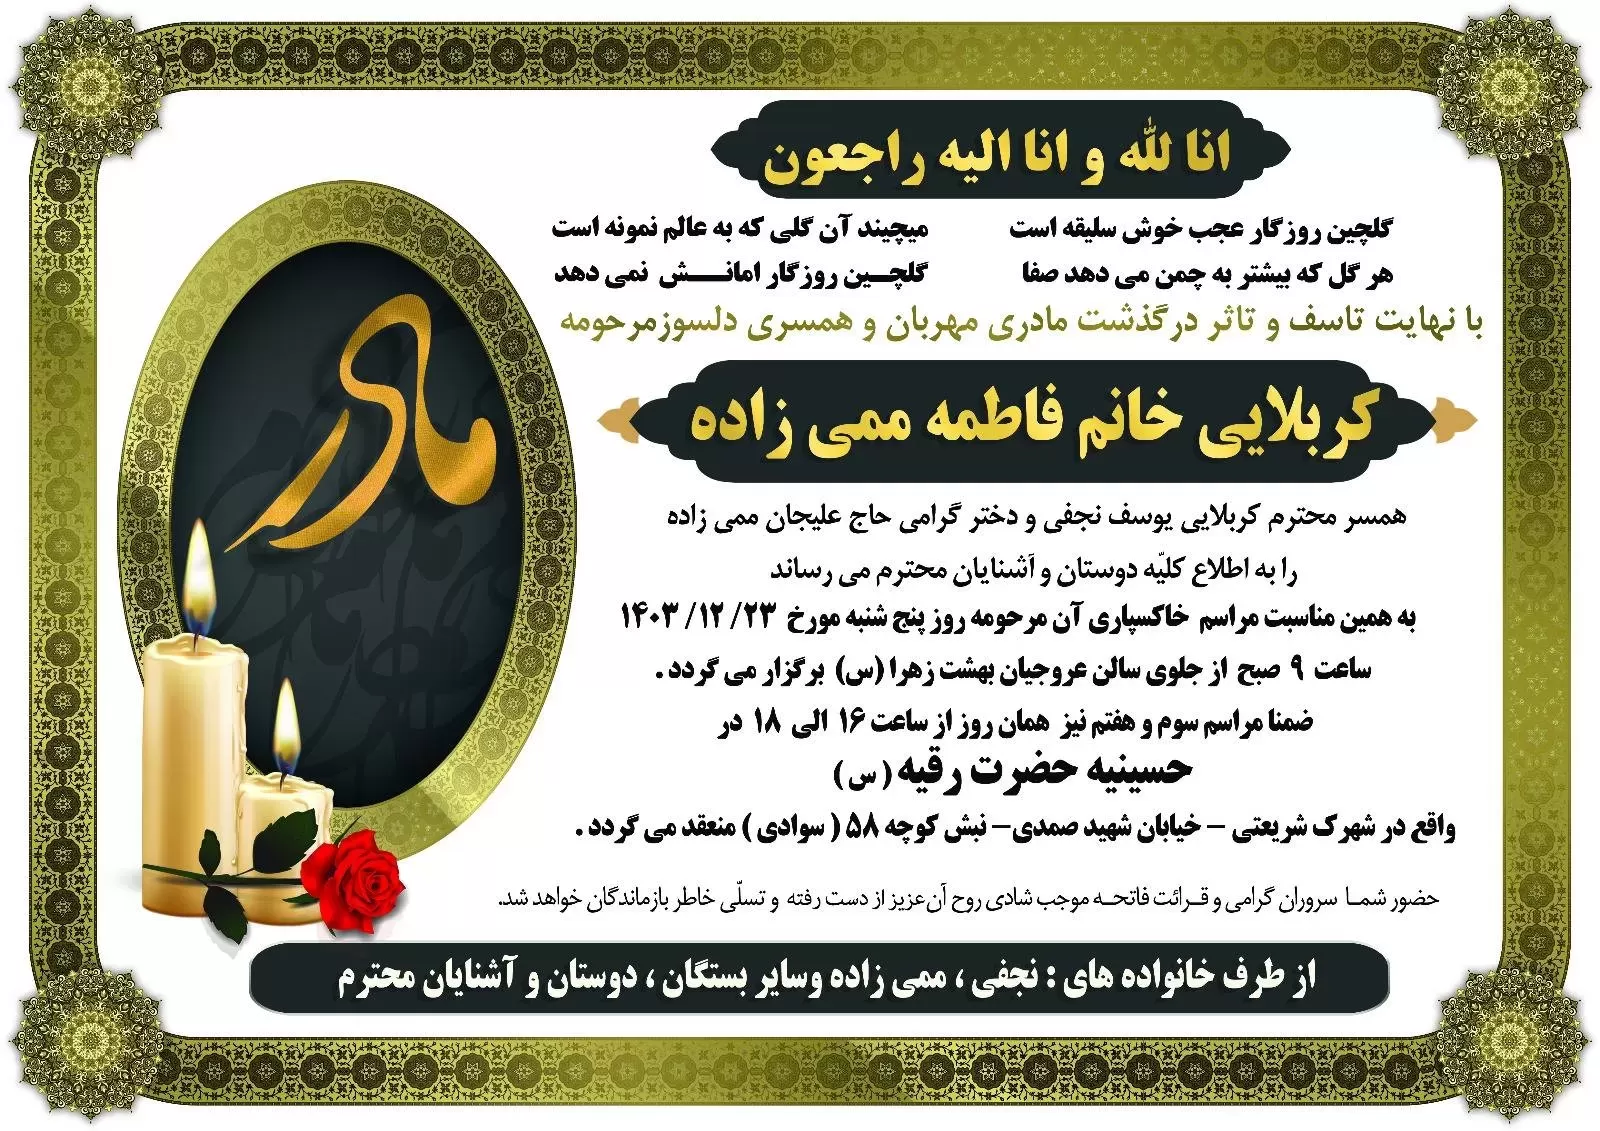 انا لله و انا الیه راجعون
گلچین روزگار عجب خوش سلیقه است میچیند آن گلی که به عالم نمونه است
هر گل که بیشتر به چمن می دهد صفا گلچــین روزگار امانـــــش نمی دهد
با نهایت تاسف و تاثر درگذشت مادری مهربان و همسری دلسوزمرحومه
کربلایی خانم فاطمه ممی زاده
همسر محترم کربلایی یوسف نجفی و دختر گرامی حاج علیجان ممی زاده
را به اطلاع کلیّه دوستان و آشنایان محترم می رساند
به همین مناسبت مراسم خاکسپاری آن مرحومه روز پنج شنبه مورخ ۲۳/ ۱۲/ ۱۴۰۳
ساعت ۹ صبح از جلوی سالن عروجیان بهشت زهرا (س) برگزار می گردد .
ضمنا مراسم سوم و هفتم نیز همان روز از ساعت ۱۶ الی ۱۸ در
حسینیه حضرت رقیه ( س )
واقع در شهرک شریعتی – خیابان شهید صمدی– نبش کوچه ۵۸ ( سوادی ) منعقد می گردد .
حضور شمـا سروران گرامی و قـرائت فاتحـه موجب شادی روح آن‌عزیز از دست رفته و تسلّی خاطر بازماندگان خواهد شد.
از طرف خانواده های : نجفی ، ممی زاده وسایر بستگان ، دوستان و آشنایان محترم
مادر